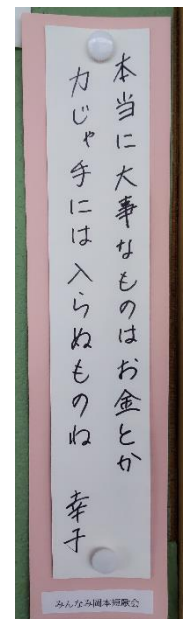 本当に大事なものはお金とか
力じゃ手には入らぬものね
幸子
みんなみ岡本短歌会